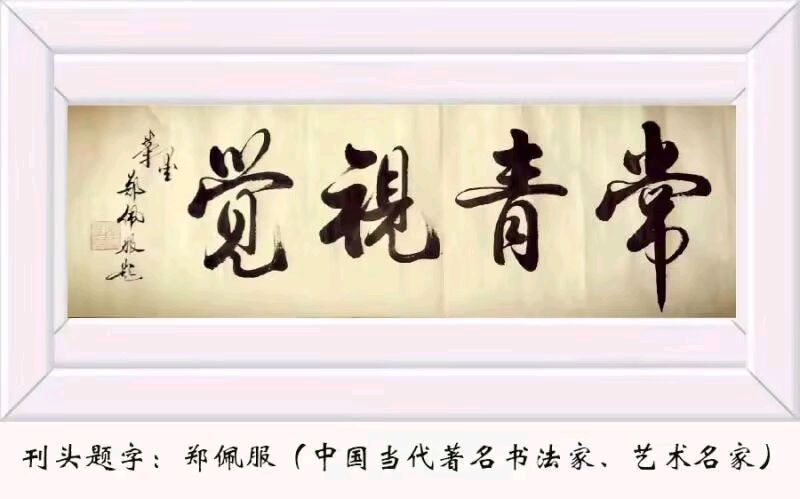 常青視觉
葉墨
郑佩服题
刊头题字：郑佩服（中国当代著名书法家、艺术名家）